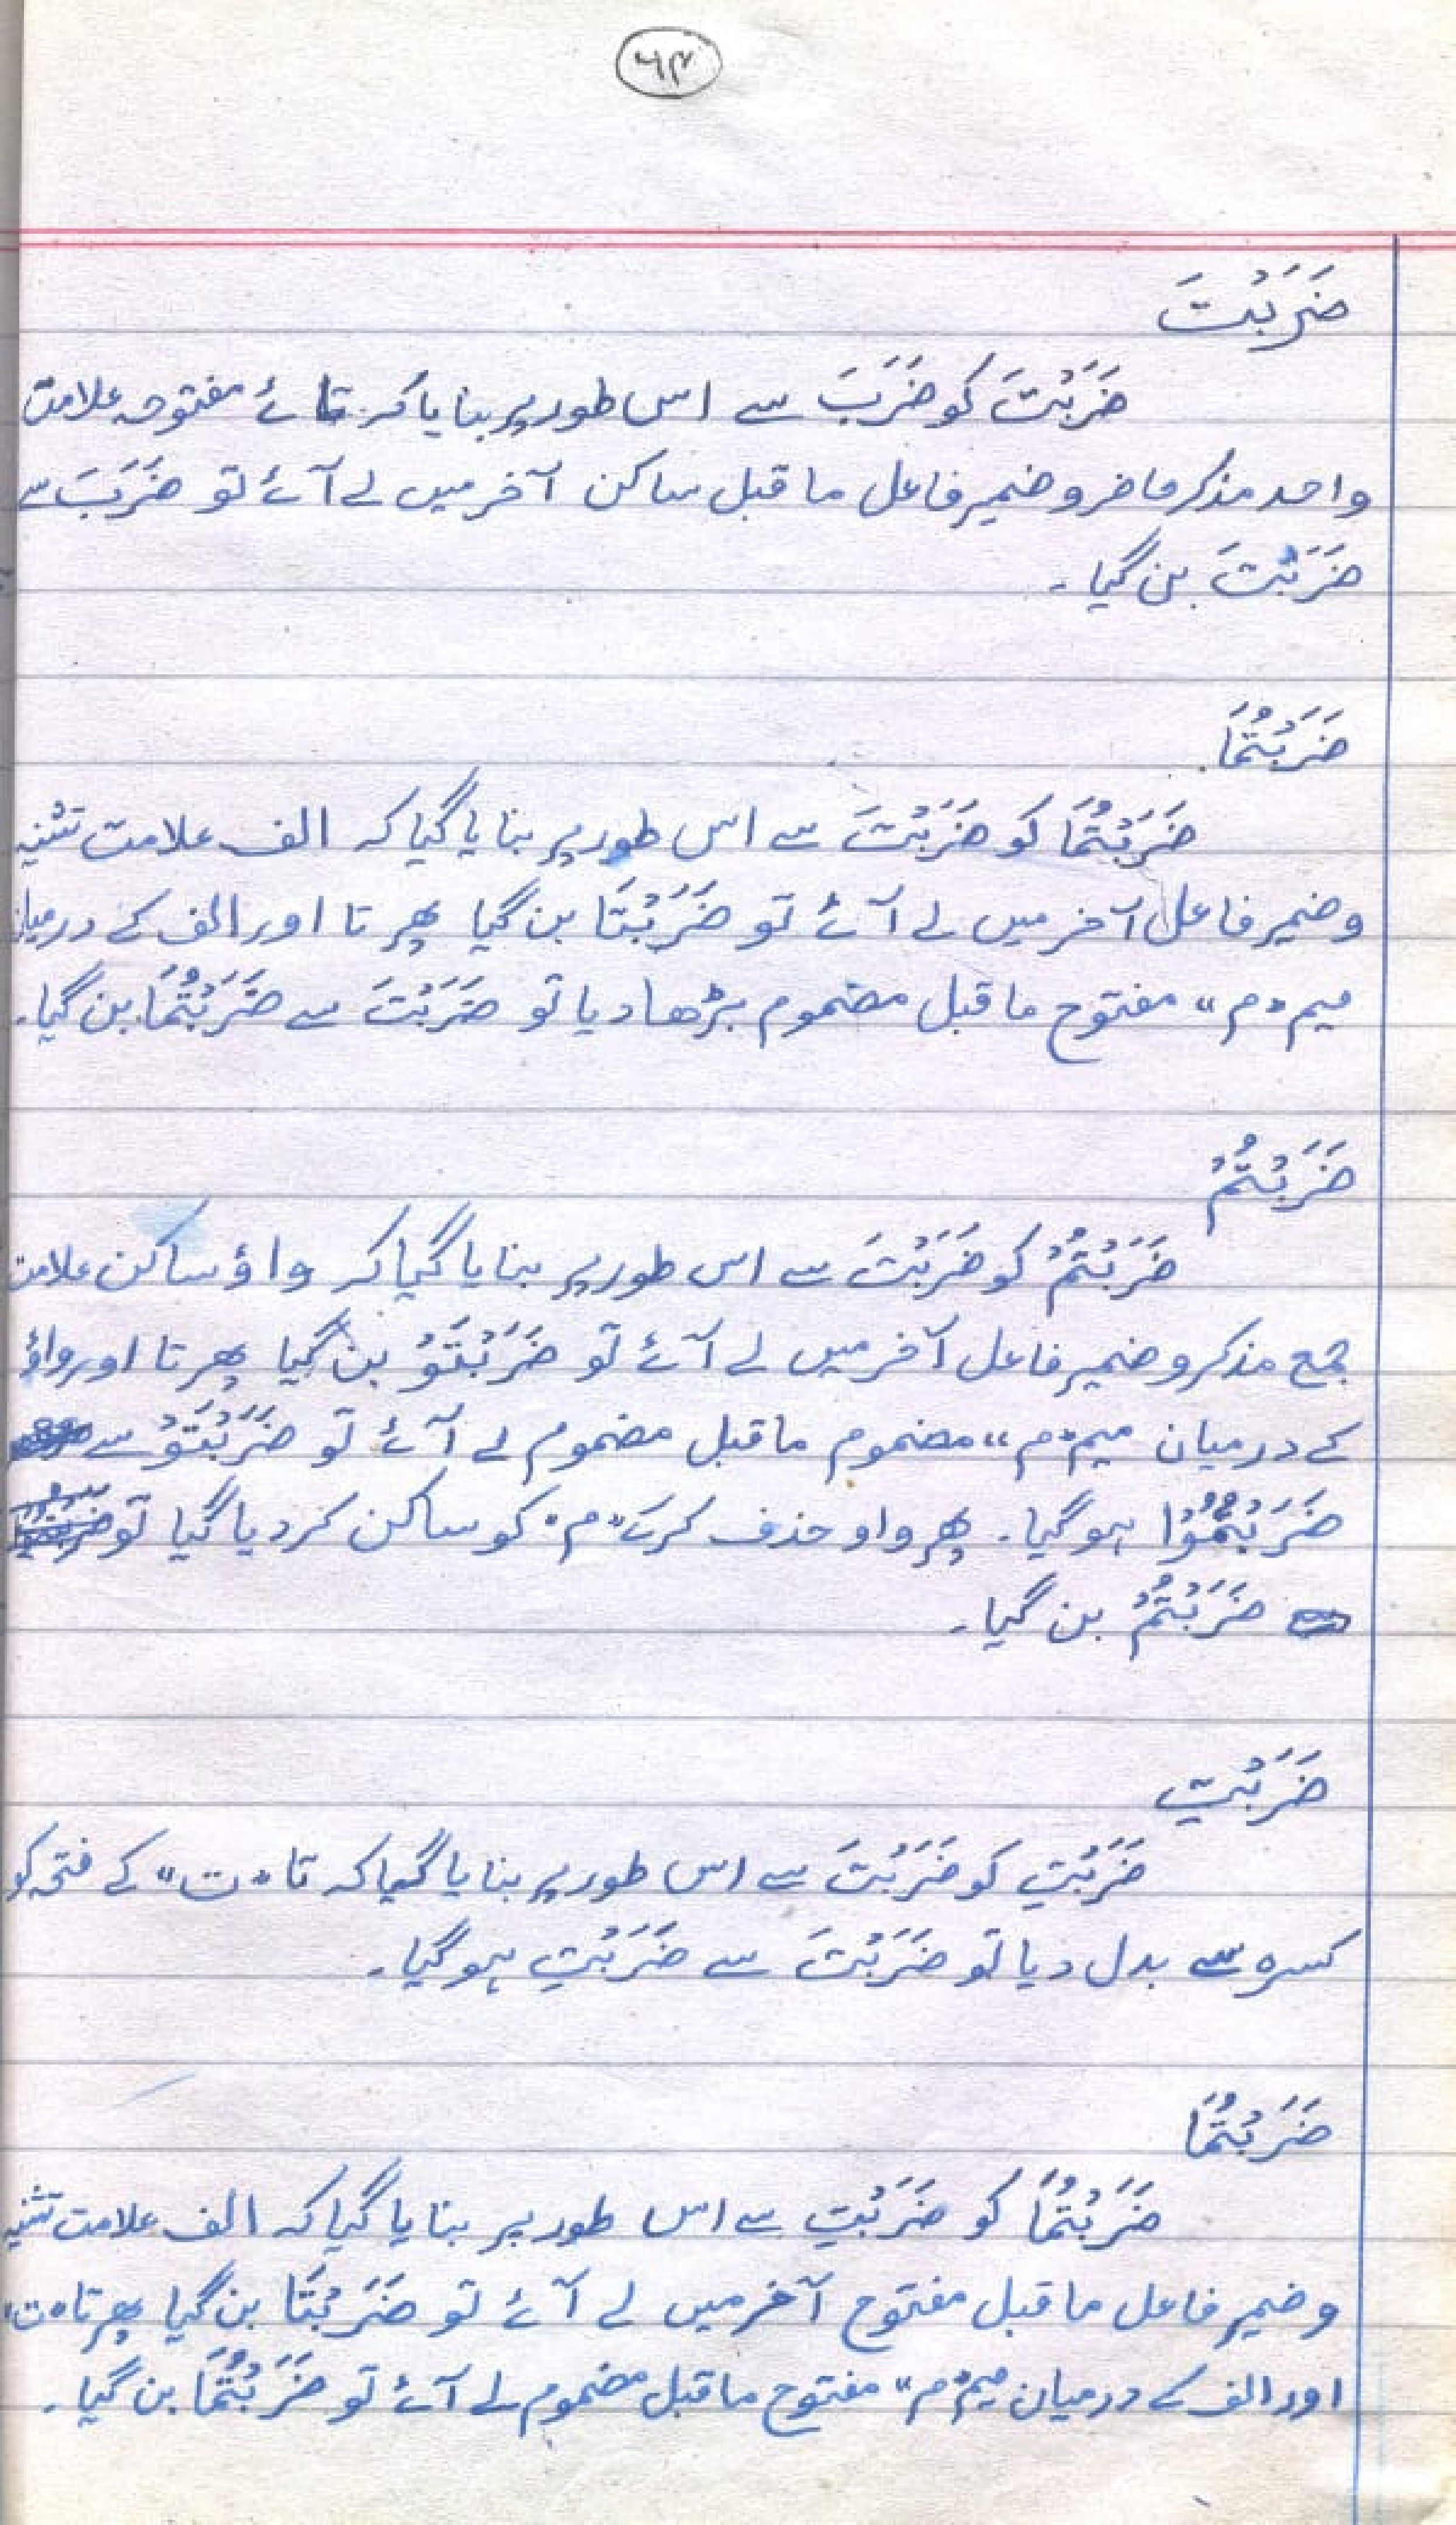 ۶۳
ضَرَبْتَ
ضَرَبْتَ کو ضَرَبَ سے اس طور پر بنایا کہ تائے مفتوحہ علامت
واحد مذکر حاضر و ضمیر فاعل ما قبل ساکن آخر میں لے آئے تو ضَرَبَ سے
ضَرَبْتَ بن گیا۔
ضَرَبْتُمَا
ضَرَبْتُمَا کو ضَرَبْتَ سے اس طور پر بنایا گیا کہ الف علامت تثنیہ
و ضمیر فاعل آخر میں لے آئے تو ضَرَبْتَا بن گیا پھر تا اور الف کے درمیان
میم "م" مفتوح ما قبل مضموم بڑھا دیا تو ضَرَبْتَ سے ضَرَبْتُمَا بن گیا۔
ضَرَبْتُمْ
ضَرَبْتُمْ کو ضَرَبْتَ سے اس طور پر بنایا گیا کہ واؤ ساکن علامت
جمع مذکر و ضمیر فاعل آخر میں لے آئے تو ضَرَبْتَوْ بن گیا پھر تا اور واؤ
کے درمیان میم "م" مضموم ما قبل مضموم لے آئے تو ضَرَبْتَوْ سے
ضَرَبْتُمُوْا ہو گیا۔ پھر واو حذف کرکے "م" کو ساکن کر دیا گیا تو
ضَرَبْتُمْ بن گیا۔
ضَرَبْتِ
ضَرَبْتِ کو ضَرَبْتَ سے اس طور پر بنایا گیا کہ تا "ت" کے فتحہ کو
کسرہ سے بدل دیا تو ضَرَبْتَ سے ضَرَبْتِ ہو گیا۔
ضَرَبْتُمَا
ضَرَبْتُمَا کو ضَرَبْتِ سے اس طور پر بنایا گیا کہ الف علامت تثنیہ
و ضمیر فاعل ما قبل مفتوح آخر میں لے آئے تو ضَرَبْتَا بن گیا پھر تا "ت"
اور الف کے درمیان میم "م" مفتوح ما قبل مضموم لے آئے تو ضَرَبْتُمَا بن گیا۔